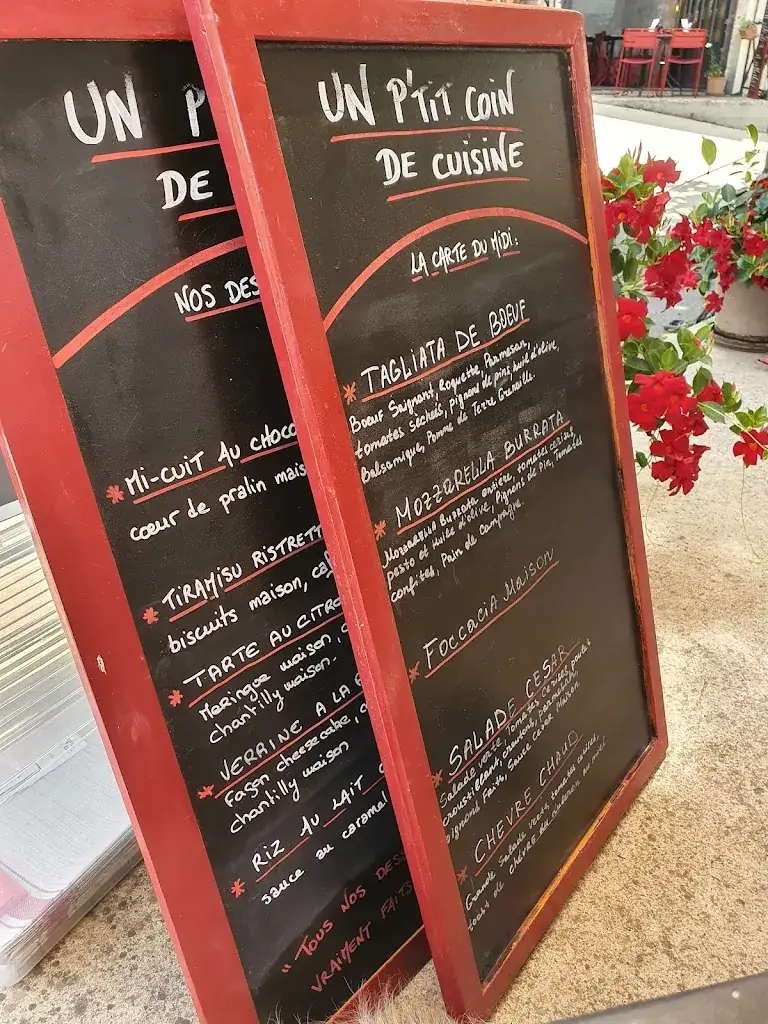 UN P
DE
NOS DES
* MI-CUIT AU CHOCO
coeur de pralin mais
* TIRAMISU RISTRETT
biscuits maison, caf
* TARTE AU CITRO
Meringue maison, c
chantilly maison.
* VERRINE A LA F
façon cheesecake,
chantilly maison
* RIZ AU LAIT
sauce au caramel
"TOUS NOS DESS
VRAIMENT FAITS
UN P'TIT COIN
DE CUISINE
LA CARTE DU MIDI:
* TAGLIATA DE BOEUF
Boeuf Saignant, Roquette, Parmesan,
tomates séchées, pignons de pins, huile d'olive,
Balsamique, Pomme de Terre Grenaille.
* MOZZARELLA BURRATA
Mozzarella Burrata entière, tomates cerises,
pesto et huile d'olive, Pignons de Pin, Tomates
confites, Pain de Campagne.
* FOCCACIA MAISON
* SALADE CESAR
Salade verte, Tomates Cerises, poulet
croustillant, croutons, parmesan,
oignons frits, Sauce Cesar Maison
* CHEVRE CHAUD
Grande Salade verte, tomates cerises,
toast de chèvre au miel